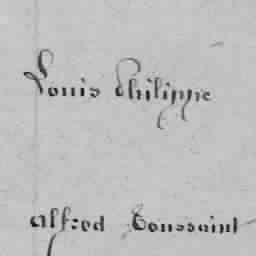 Louis Philippe
Alfred Toussaint